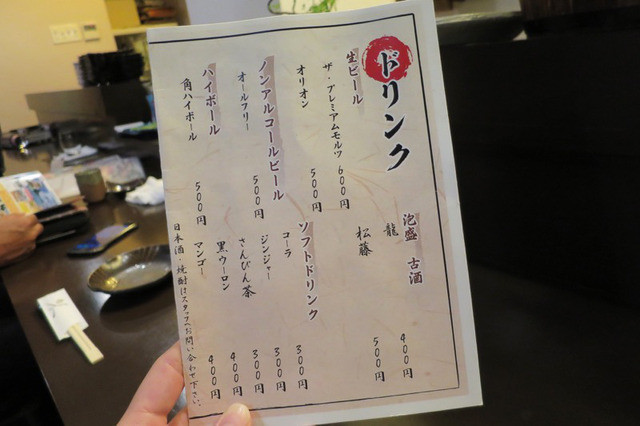 ドリンク
生ビール
ザ・プレミアムモルツ 600円
オリオン 500円
ノンアルコールビール
オールフリー 500円
ハイボール
角ハイボール 500円
泡盛 古酒
龍 400円
松藤 500円
ソフトドリンク
コーラ 300円
ジンジャー 300円
さんぴん茶 300円
黒ウーロン 400円
マンゴー 400円
日本酒・焼酎はスタッフへお問い合わせ下さい。